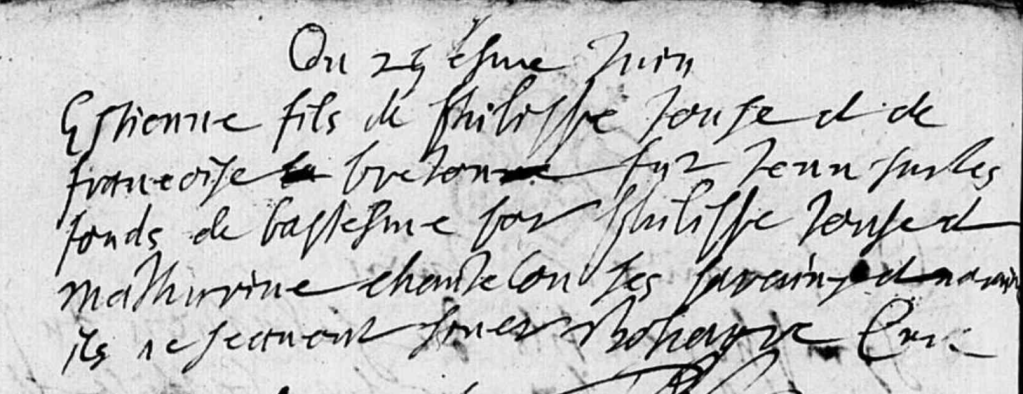 Du 25 esme Juin
Estienne fils de Philippe et de
francoise breton fut tenu sur les
fonds de baptesme par Philippe et
Mathurine chantelou ses parains et
ils ne scavent signer